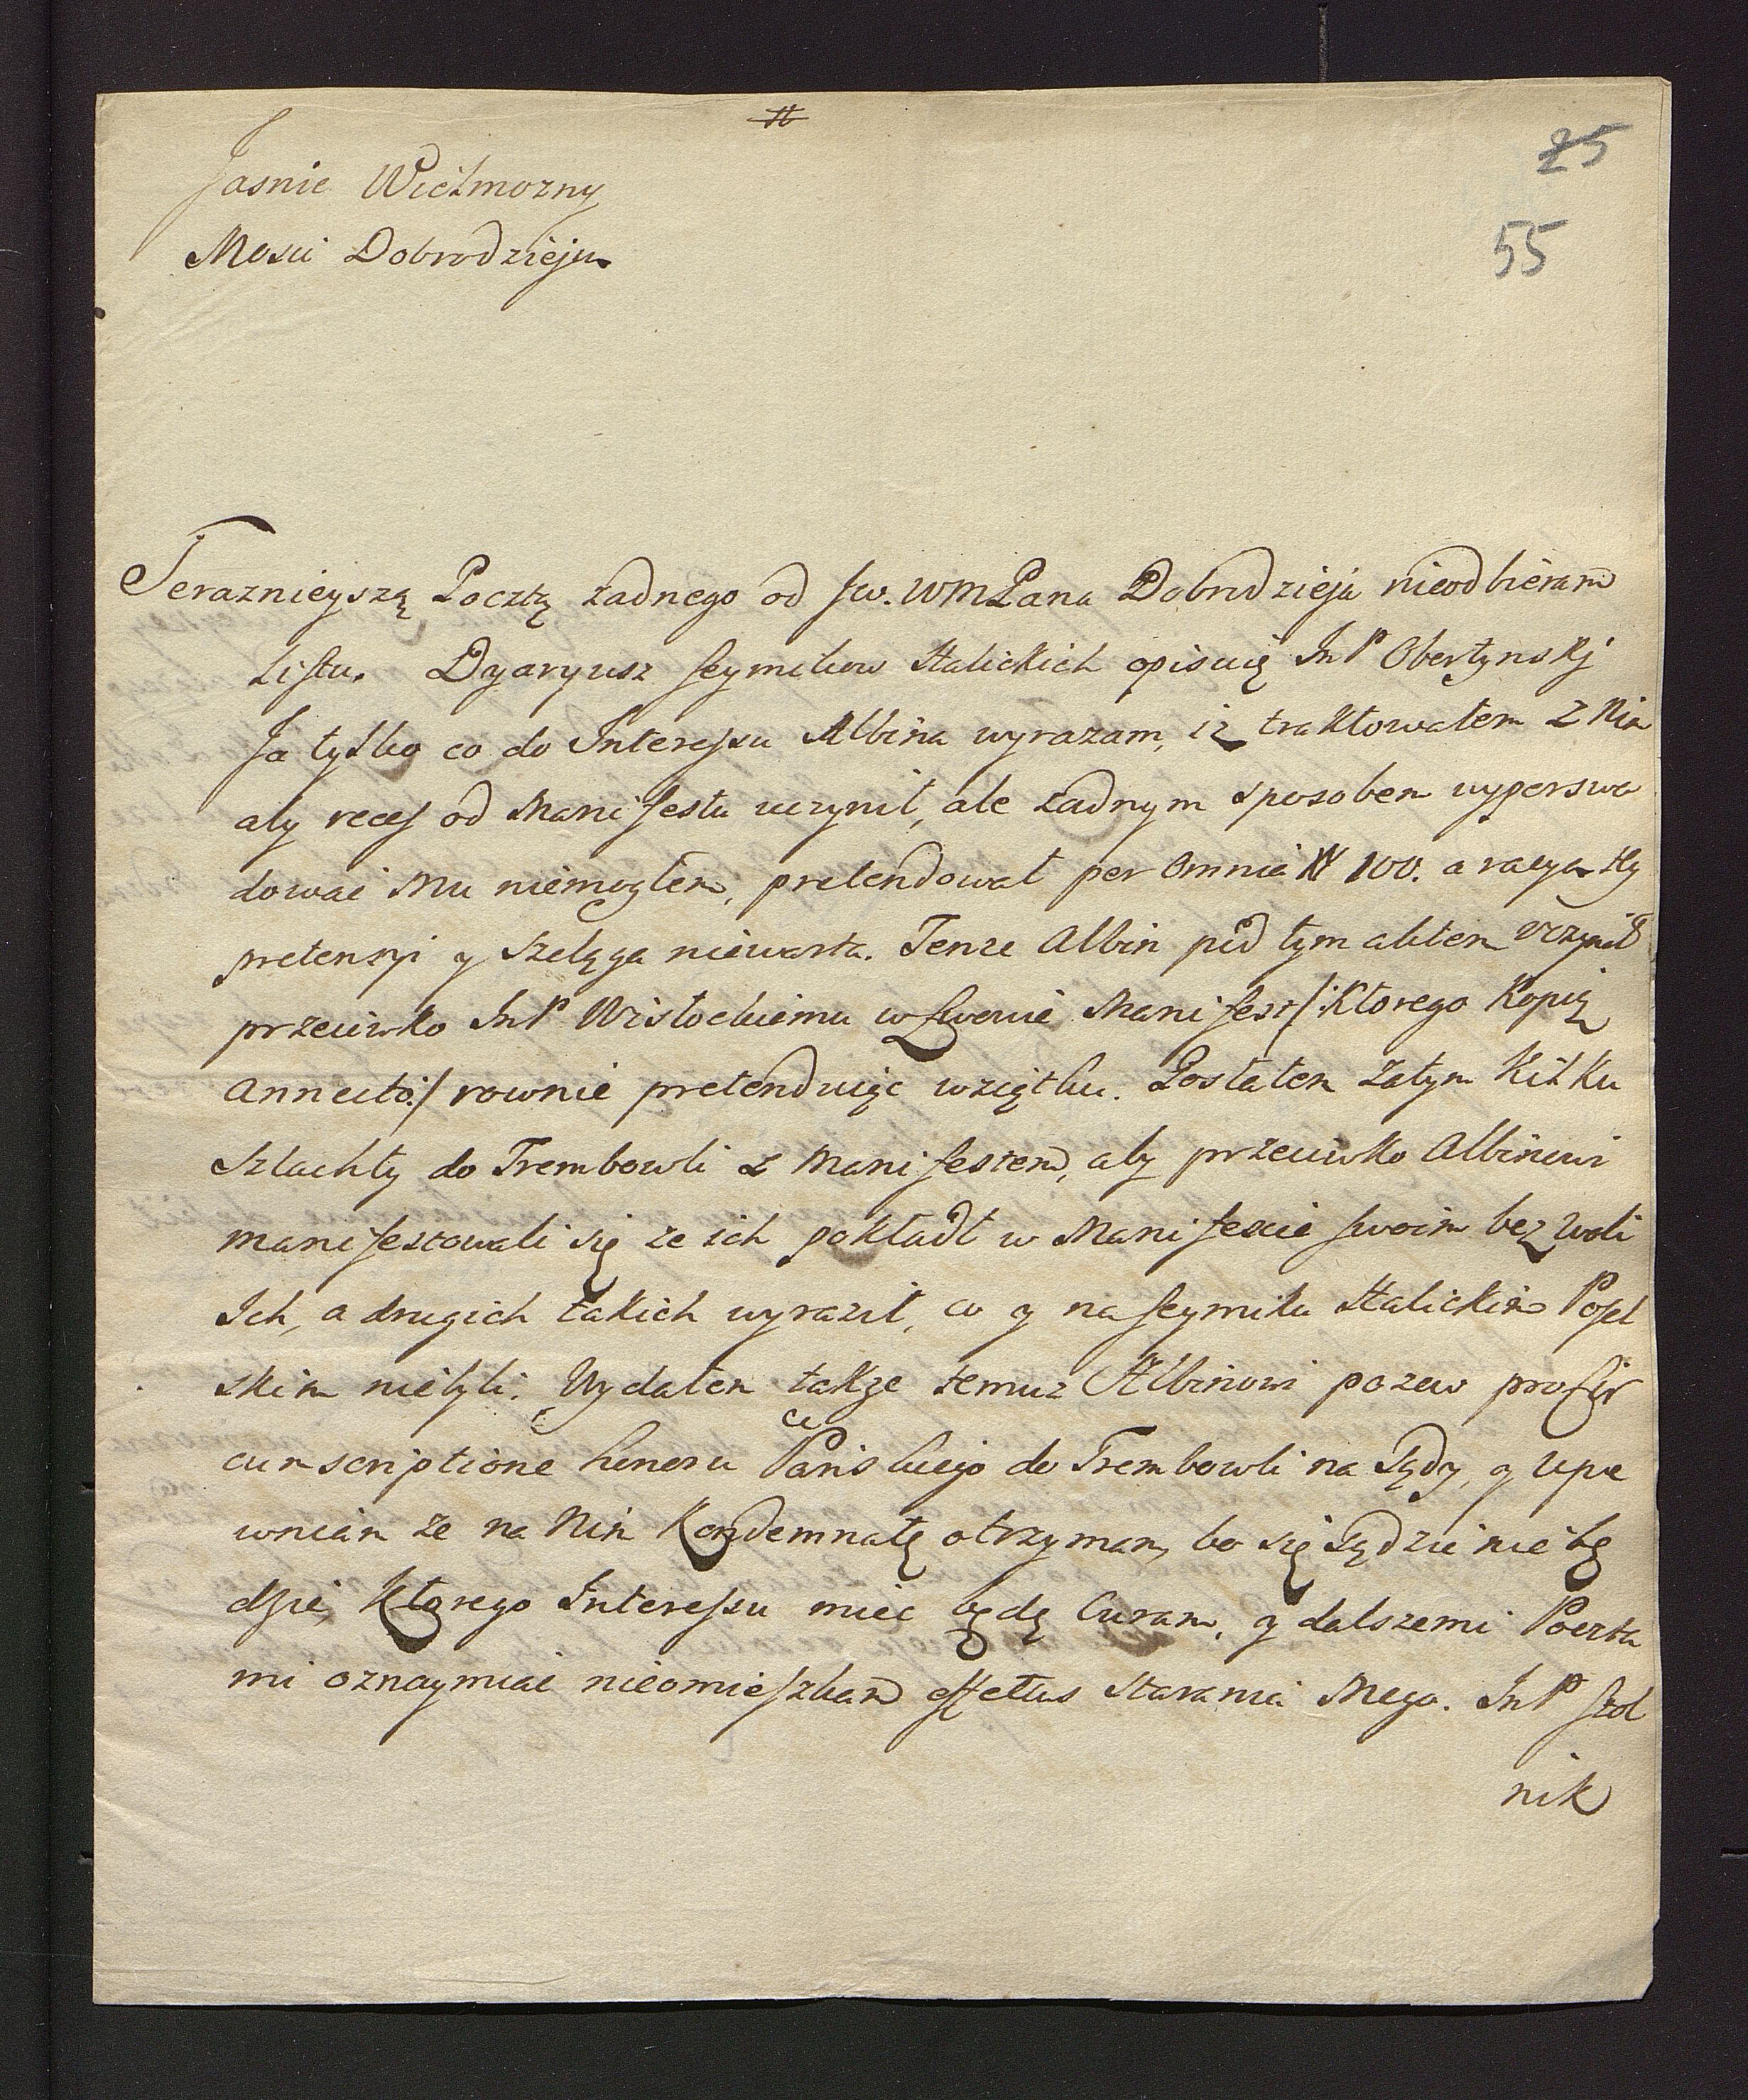 25
55
Jasnie Wielmozny
Mosci Dobrodzieju
Teraznieyszą Pocztą zadnego od Jw. WMPana Dobrodzieja nieodbieram
Listu. Dyaryusz seymikow Halickich opisuię JmP Obertynskj
Ja tylko co do Interessu Albina wyrazam, iz traktowałem z Nim
aby reces od Manifestu uczynił, ale zadnym sposobem wyperswa
dowac Mu niemogłem, pretendował per omnia # 100. a racya Jey
pretensyi y szelęga niewarta. Tenze Albin pod tym aktem uczynił
przeciwko JmP Wisłockiemu w Lwowie Manifest /: Ktorego Kopią
annecto :/ rownie pretenduiąc wziątku. Posłałem zatym Kilku
Szlachty do Trembowli z Manifestem, aby przeciwko Albinowi
manifestowali się ze ich pokładł w Manifescie swoim bez woli
Ich, a drugich takich wyraził, co y na seymiku Halickim Posel
skim niebyli. Wydałem takze temuz Albinowi pozew pro Cir
cumscriptione honoru Panskiego do Trembowli na Sądy, y upe
wniam ze na Nim Kondemnatę otrzymam, bo się sądzic nie bę
dzie, Ktorego Interessu miec będę Curam, y dalszemi Poczta
mi oznaymiac nieomieszkam effectus starania Mego. JmP Stol
nik